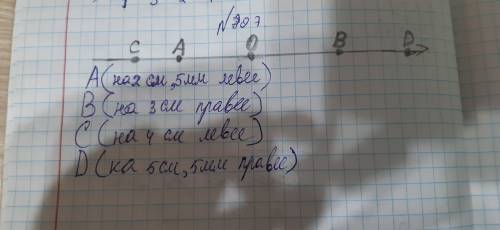 C A O B D
A (на 2 см, 5 мм левее)
B (на 3 см правее)
C (на 4 см левее)
D (на 5 см, 5 мм правее)